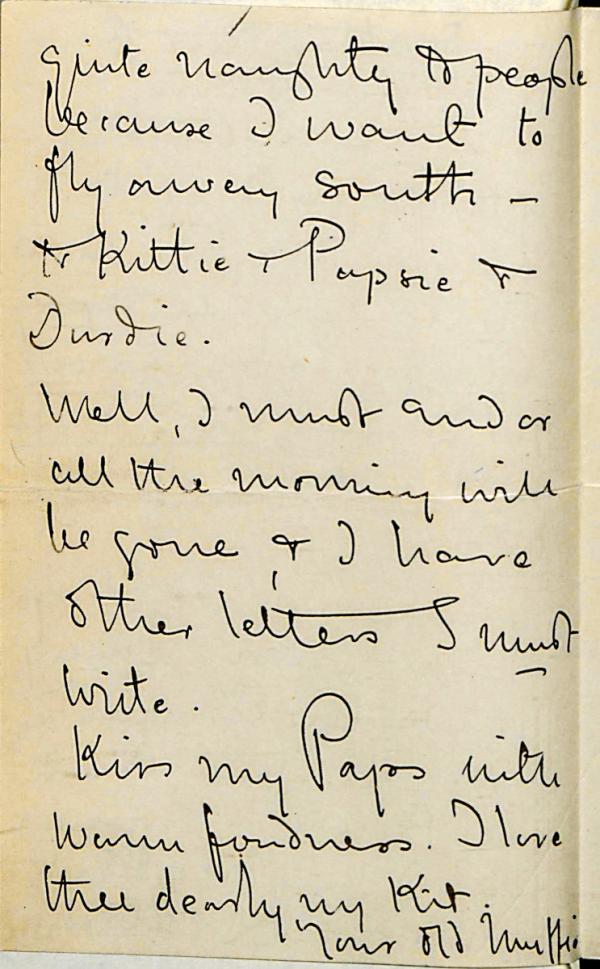 quite naughty to people
because I want to
fly away south –
to Kittie & Papsie &
Durdie.
Well, I must end or
all the morning will
be gone, & I have
other letters I must
write.
Kiss my Paps with
warm fondness. I love
thee dearly my Kit.
Your old Muffie